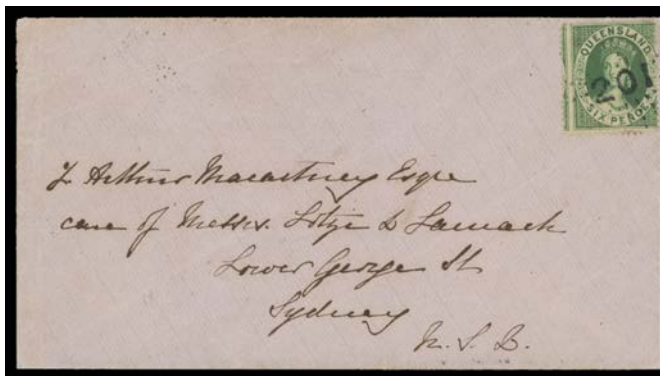 QUEENSLAND
201
SIX PENCE
Arthur Macartney Esqre
care of Messrs. & Larnach
Lower George St
Sydney
N. S.